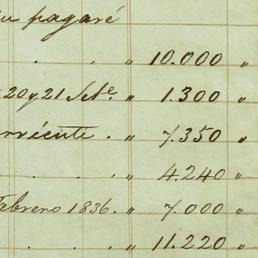 su pagaré
. . " 10.000 "
20 y 21 Set.e " 1.300 "
corriente. " 7.350 "
. . " 4.240 "
Febrero 1836. " 7.000 "
. . . " 11.220 "